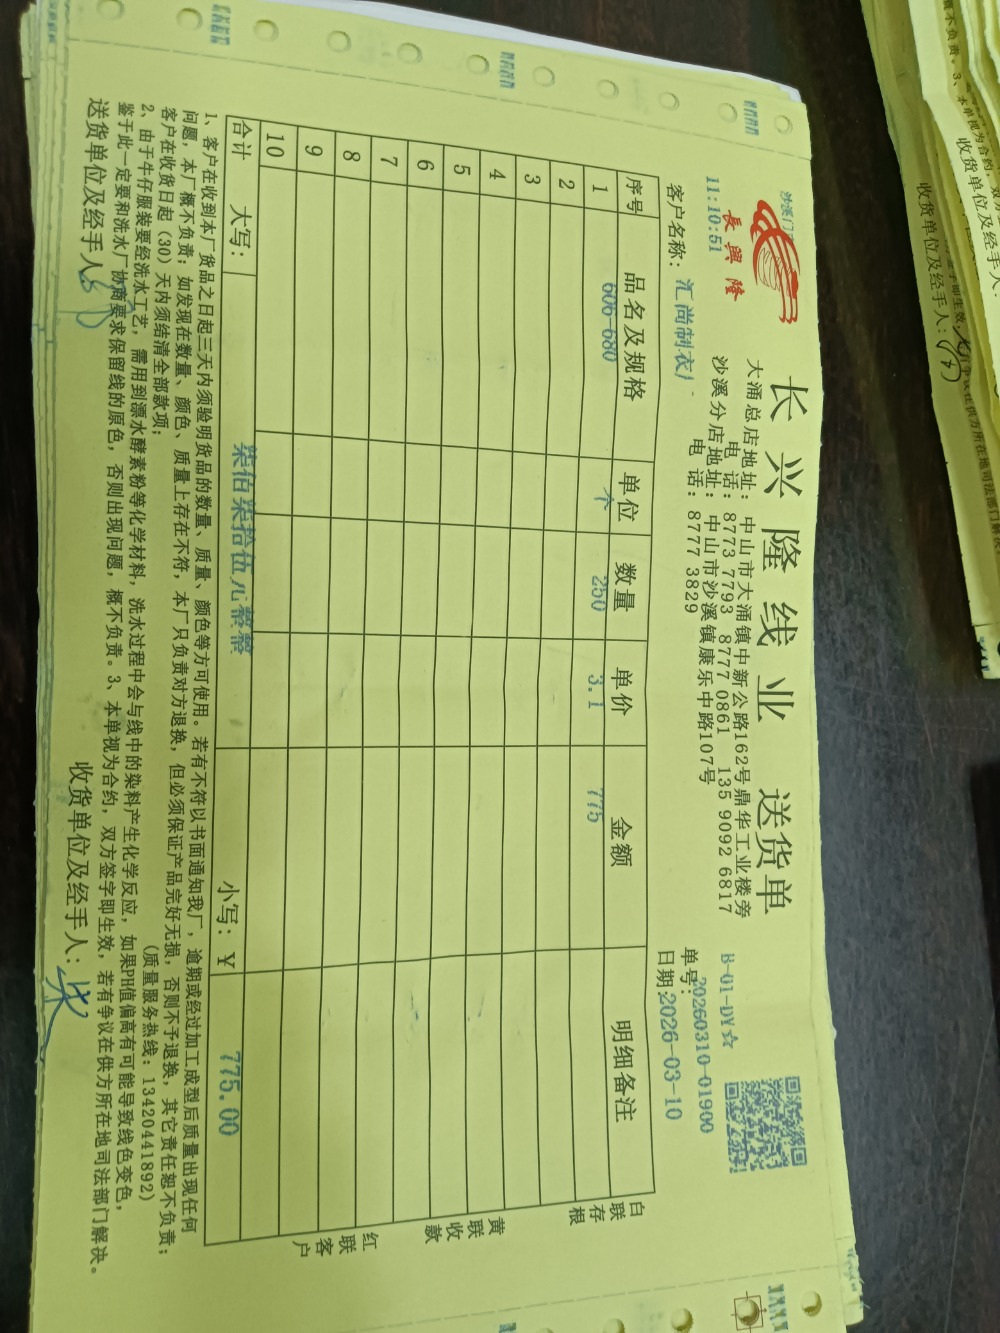 沙溪门
長興隆
11:10:51
长兴隆线业 送货单
大涌总店地址：中山市大涌镇中新公路162号鼎华工业楼旁
电 话：8773 7793 8777 0861 135 9092 6817
沙溪分店地址：中山市沙溪镇康乐中路107号
电 话：8777 3829
B-01-DY☆
单号：20260310-01900
客户名称：汇尚制衣厂
日期：2026-03-10
序号 品名及规格 单位 数量 单价 金额 明细备注
1 606-680 个 250 3.1 775
2
3
4
5
6
7
8
9
10
合计 大写： 柒佰柒拾伍元整整 小写：￥ 775.00
白联存根
黄联收款
红联客户
1、客户在收到本厂货品之日起三天内须验明货品的数量、质量、颜色等方可使用。若有不符以书面通知我厂，逾期或经过加工成型后质量出现任何
问题，本厂概不负责；如发现在数量、颜色、质量上存在不符，本厂只负责对方退换，但必须保证产品完好无损，否则不予退换，其它责任恕不负责；
客户在收货日起（30）天内须结清全部款项； （质量服务热线：13420441892）
2、由于牛仔服装要经洗水工艺，需用到漂水酵素粉等化学材料，洗水过程中会与线中的染料产生化学反应，如果PH值偏高有可能导致线色变色，
鉴于此一定要和洗水厂协商要求保留线的原色，否则出现问题，概不负责。3、本单视为合约，双方签字即生效，若有争议在供方所在地司法部门解决。
送货单位及经手人： 收货单位及经手人：
收货单位及经手人：
收货单位及经手人：